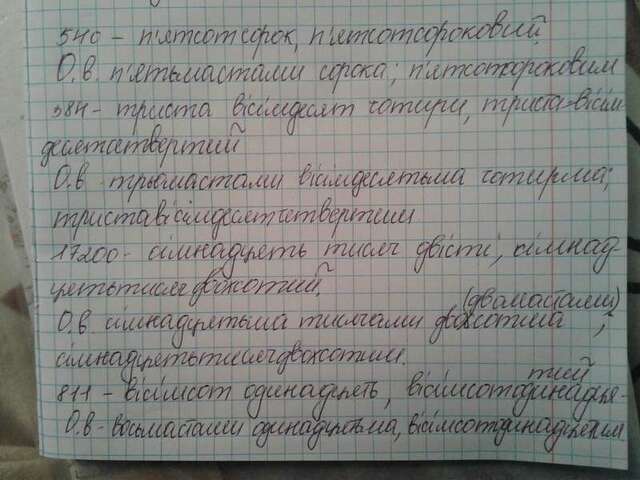 540 - п'ятсот сорок, п'ятсотсороковий.
О.в. п'ятьмастами сорока; п'ятсотсороковим
384 - триста вісімдесят чотири, триставісім
десятчетвертий
О.в трьомастами вісімдесятьма чотирма;
триставісімдесятчетвертим
17200 - сімнадцять тисяч двісті, сімнад-
цятьтисячдвохсотий,
(двомастами)
О.в. сімнадцятьма тисячами двохсотима ;
сімнадцятьтисячдвохсотим.
тий
811 - вісімсот одинадцять, вісімсотодинадця-
О.в - восьмастами одинадцятьма, вісімсотодинадцятим